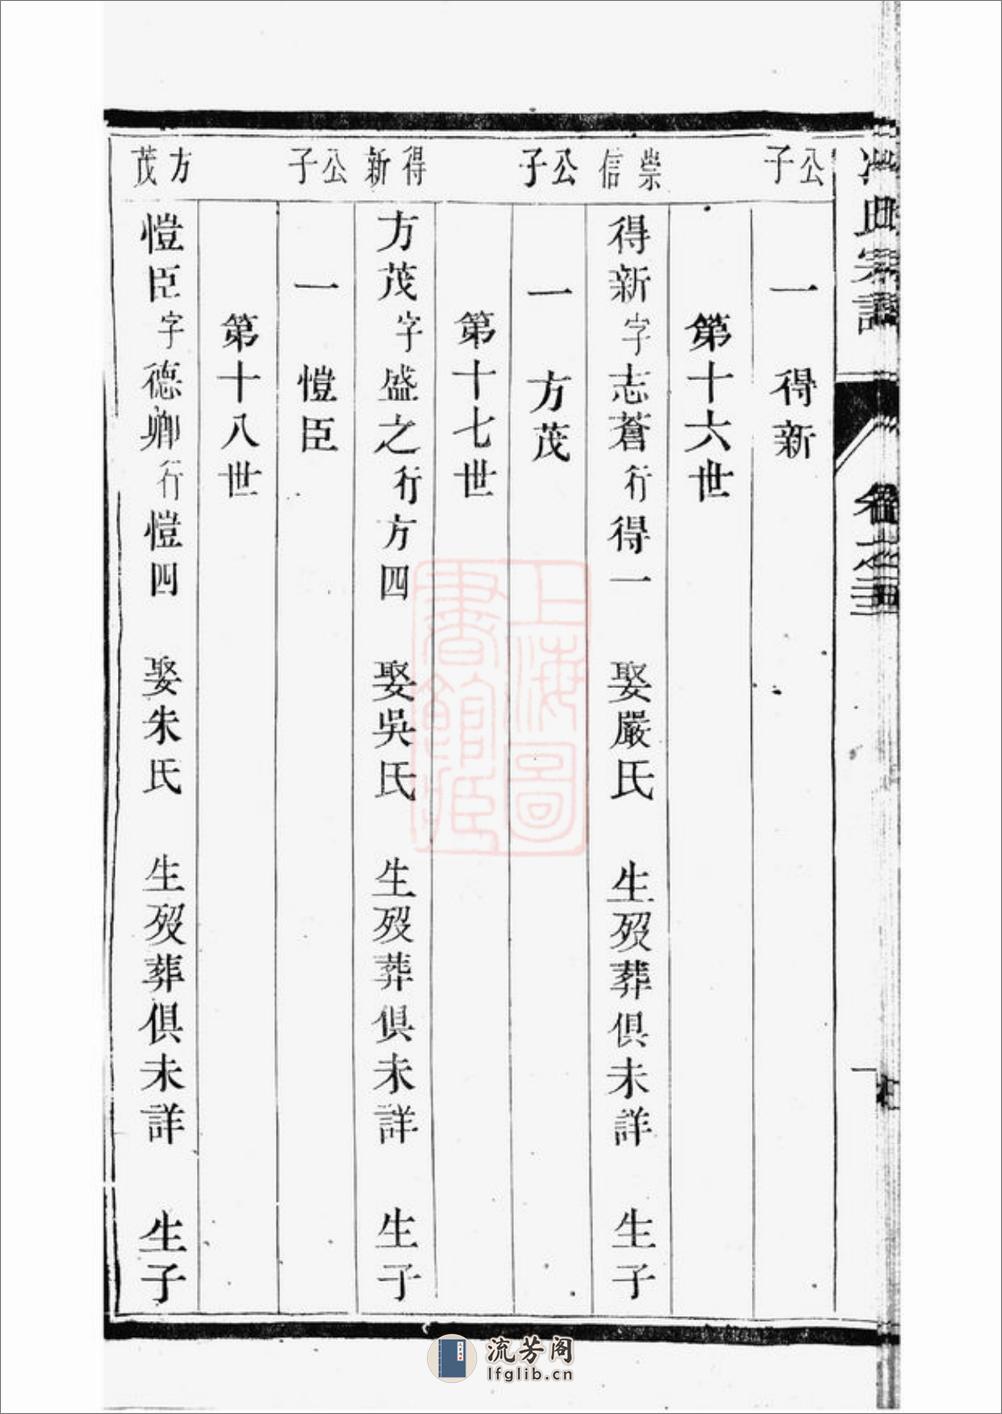 氏宗譜 卷之三
公子
一 得新
第十六世
崇信
得新字志蒼行得一 娶嚴氏 生歿葬俱未詳 生子
公子
一 方茂
第十七世
得新
方茂字盛之行方四 娶吳氏 生歿葬俱未詳 生子
公子
一 愷臣
第十八世
方茂
愷臣字德卿行愷四 娶朱氏 生歿葬俱未詳 生子
上海圖書館藏
流芳阁
lfglib.cn